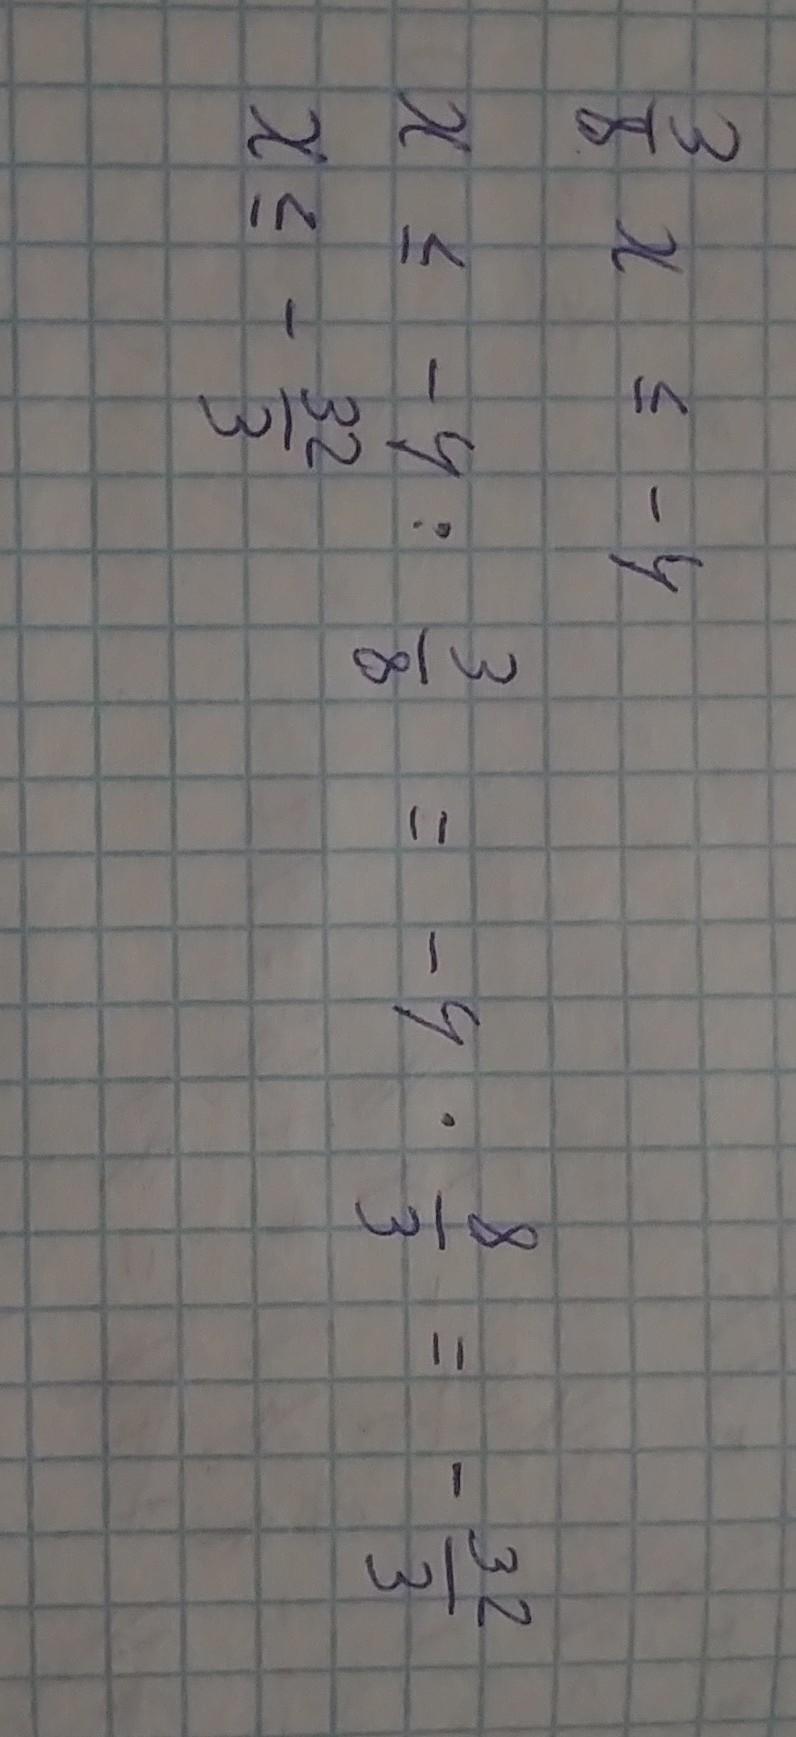 3/8 x ≤ -4
x ≤ -4 : 3/8 = -4 · 8/3 = - 32/3
x ≤ - 32/3